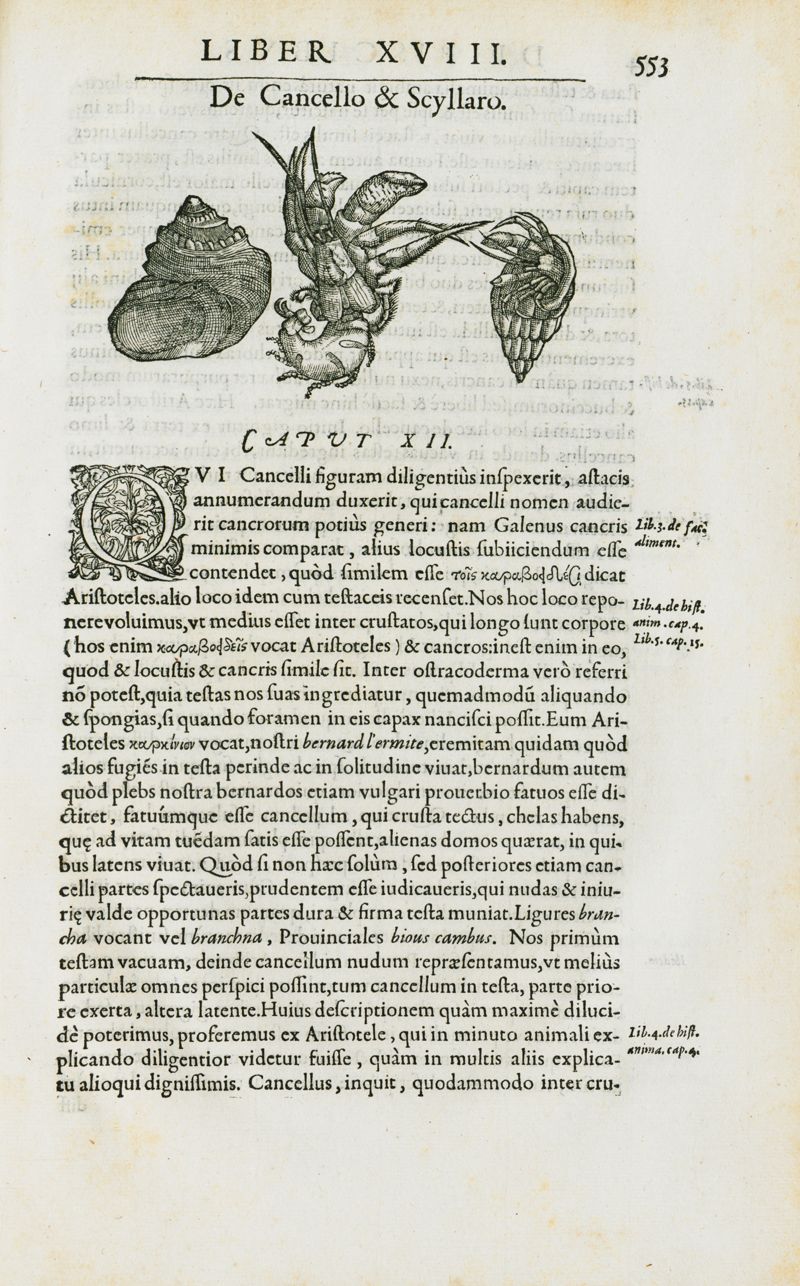 LIBER XVIII.
553
De Cancello & Scyllaro.
CAPVT XII.
QVI Cancelli figuram diligentiùs inſpexerit, aſtacis
annumerandum duxerit, qui cancelli nomen audie-
rit cancrorum potiùs generi: nam Galenus cancris
Lib.3. de fac.
minimis comparat, alius locuſtis ſubiiciendum eſſe
aliment.
contendet, quòd ſimilem eſſe τοῖς dicat
Ariſtoteles.alio loco idem cum teſtaceis recenſet.Nos hoc loco repo-
Lib.4.de hiſt.
nere voluimus,vt medius eſſet inter cruſtatos,qui longo ſunt corpore
anim.cap.4.
(hos enim vocat Ariſtoteles) & cancros:ineſt enim in eo,
Lib.5.cap.15.
quod & locuſtis & cancris ſimile ſit. Inter oſtracoderma verò referri
nō poteſt,quia teſtas nos ſuas ingrediatur, quemadmodū aliquando
& ſpongias,ſi quando foramen in eis capax nanciſci poſſit.Eum Ari-
ſtoteles καρκίνιον vocat,noſtri bernard l'ermite,eremitam quidam quòd
alios fugiés in teſta perinde ac in ſolitudine viuat,bernardum autem
quòd plebs noſtra bernardos etiam vulgari prouerbio fatuos eſſe di-
ctitet, fatuúmque eſſe cancellum, qui cruſta tectus, chelas habens,
quę ad vitam tuédam ſatis eſſe poſſent,alienas domos quærat, in qui-
bus latens viuat. Quòd ſi non hæc ſolùm, ſed poſteriores etiam can-
celli partes ſpectaueris,prudentem eſſe iudicaueris,qui nudas & iniu-
rię valde opportunas partes dura & firma teſta muniat.Ligures bran-
cha vocant vel branchna, Prouinciales bious cambus. Nos primùm
teſtam vacuam, deinde cancellum nudum repræſentamus,vt meliùs
particulæ omnes perſpici poſſint,tum cancellum in teſta, parte prio-
re exerta, altera latente.Huius deſcriptionem quàm maximè diluci-
dè poterimus, proferemus ex Ariſtotele, qui in minuto animali ex-
Lib.4.de hiſt.
plicando diligentior videtur fuiſſe, quàm in multis aliis explica-
anima.cap.4.
tu alioqui digniſſimis. Cancellus, inquit, quodammodo inter cru-